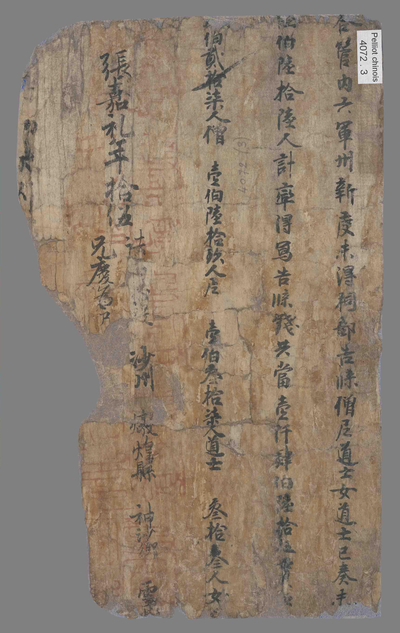 合管內六軍州新度未得祠部告牒僧尼道士女道士已奏未
陸伯陸拾陸人計率得寫告牒錢共當壹仟肆伯陸拾
伯貳拾柒人僧 壹伯陸拾玖人尼 壹伯叁拾柒人道士 叁拾叁人女
張嘉礼年拾伍 法 沙州 燉煌縣 神沙鄉 靈
兄慶
Pelliot chinois
4072.3